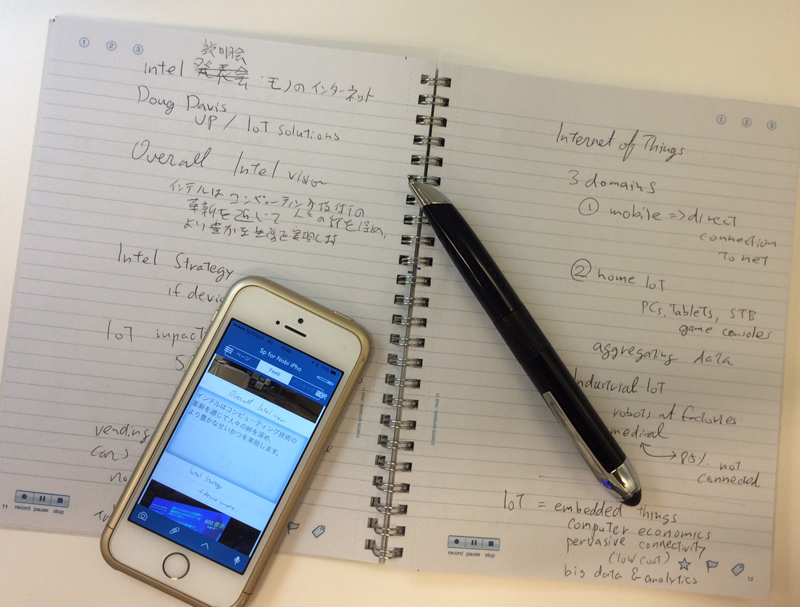 ① ② ③
説明会
intel 発表会 モノのインターネット
Doug Davis
VP / IoT solutions
Overall Intel vision
インテルはコンピューティング技術の
革新を通じて人々の絆を深め、
より豊かな生活を実現します
Intel Strategy
if devic
IoT impact
vending
cars
record pause stop
11
Sp for Nobi iPho
ページ
Feed
選択
Overall Intel vision
インテルはコンピューティング技術の
革新を通じて人々の絆を深め、
より豊かなせいかつを実現します。
Intel Strategy
① ② ③
Internet of Things
3 domains
① mobile => direct
connection
to net
② home IoT
PCs, Tablets, STB
game consoles
aggregating data
Industrial IoT
robots at factories
medical
85% not
connected
IoT = embedded things
computer economics
pervasive connectivity
(low cost)
big data & analytics
record pause stop
12